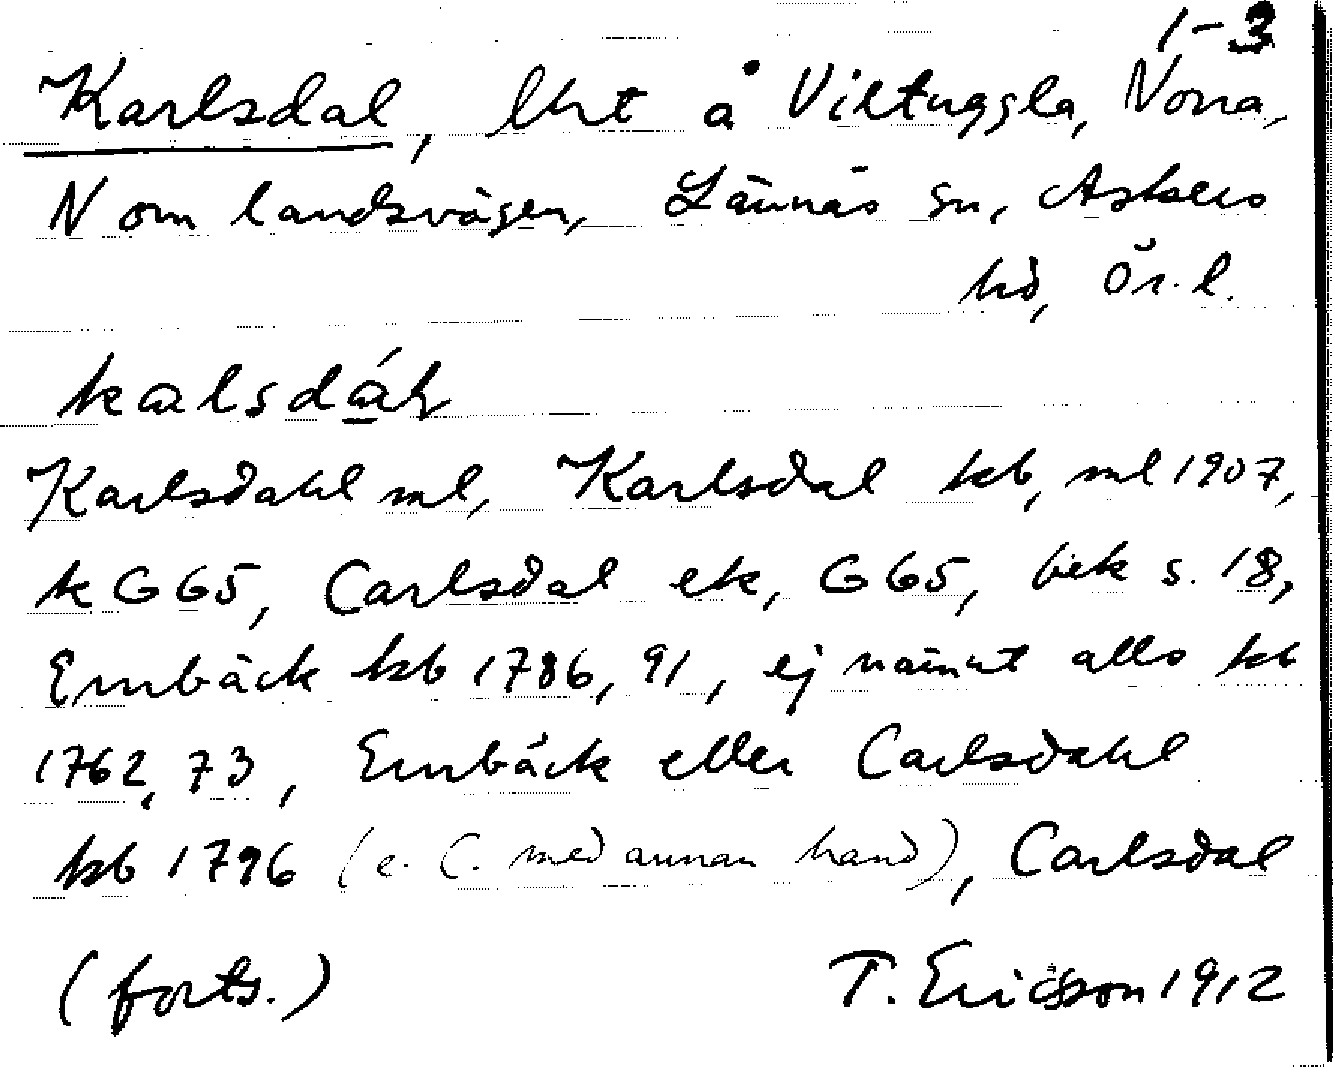 1-3
Karlsdal, lht å Viltuggla, Norra,
N om landsvägen, Lännäs sn, Askers
hd, Ör. l.
kalsdáɫ
Karlsdahl ml, Karlsdal kb, ml 1907,
k G65, Carlsdal ek, G65, bek s. 18,
Embäck kb 1786, 91, ej nämnt alls kb
1762, 73, Embäck eller Carlsdahl
kb 1796 (e. C. med annan hand), Carlsdal
(forts.) T. Ericsson 1912